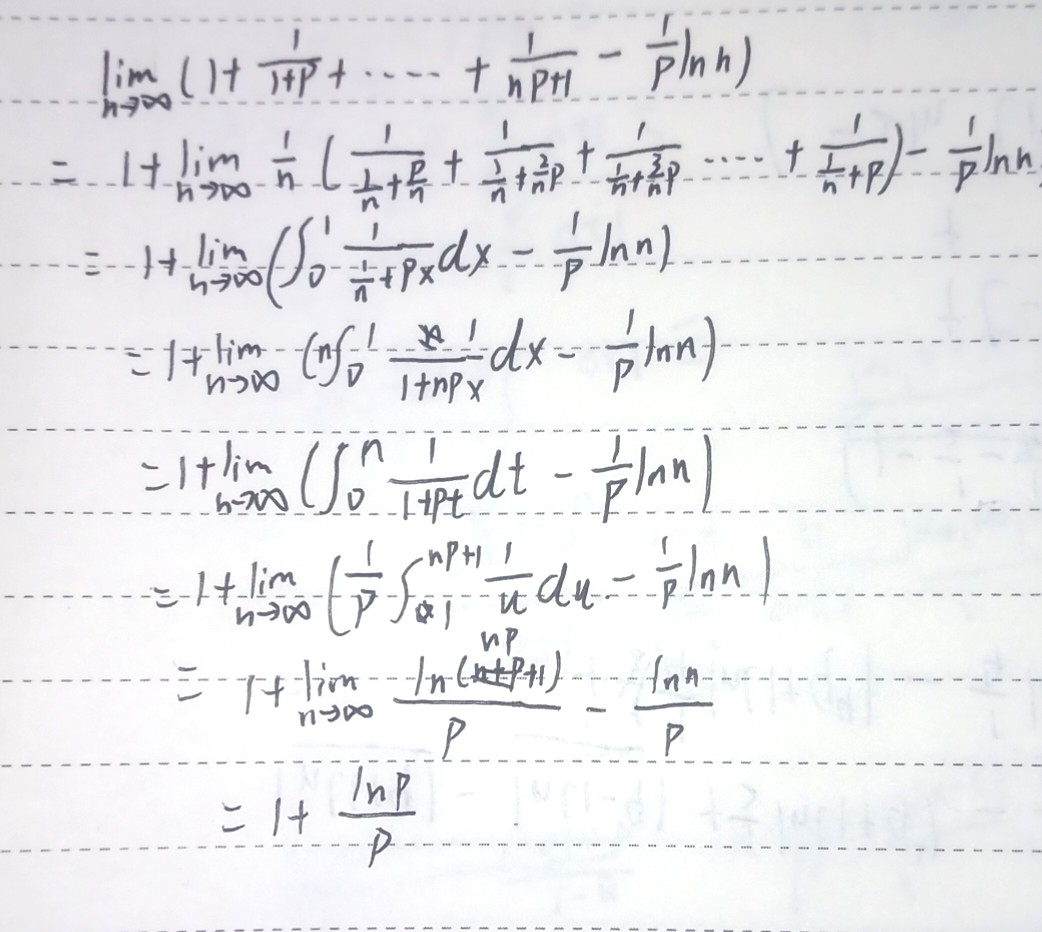 lim n→∞ (1 + 1/(1+p) + ····· + 1/(np+1) − 1/p ln n)
= 1 + lim n→∞ 1/n ( 1/(1/n + p/n) + 1/(1/n + 2/n p) + 1/(1/n + 3/n p) ···· + 1/(1/n + p) ) − 1/p ln n
= 1 + lim n→∞ (∫₀¹ 1/(1/n + px) dx − 1/p ln n)
= 1 + lim n→∞ (n∫₀¹ 1/(1+npx) dx − 1/p ln n)
= 1 + lim n→∞ (∫₀ⁿ 1/(1+pt) dt − 1/p ln n)
= 1 + lim n→∞ (1/p ∫₁^(np+1) 1/u du − 1/p ln n)
= 1 + lim n→∞ ln(np+1)/p − ln n/p
= 1 + ln p/p